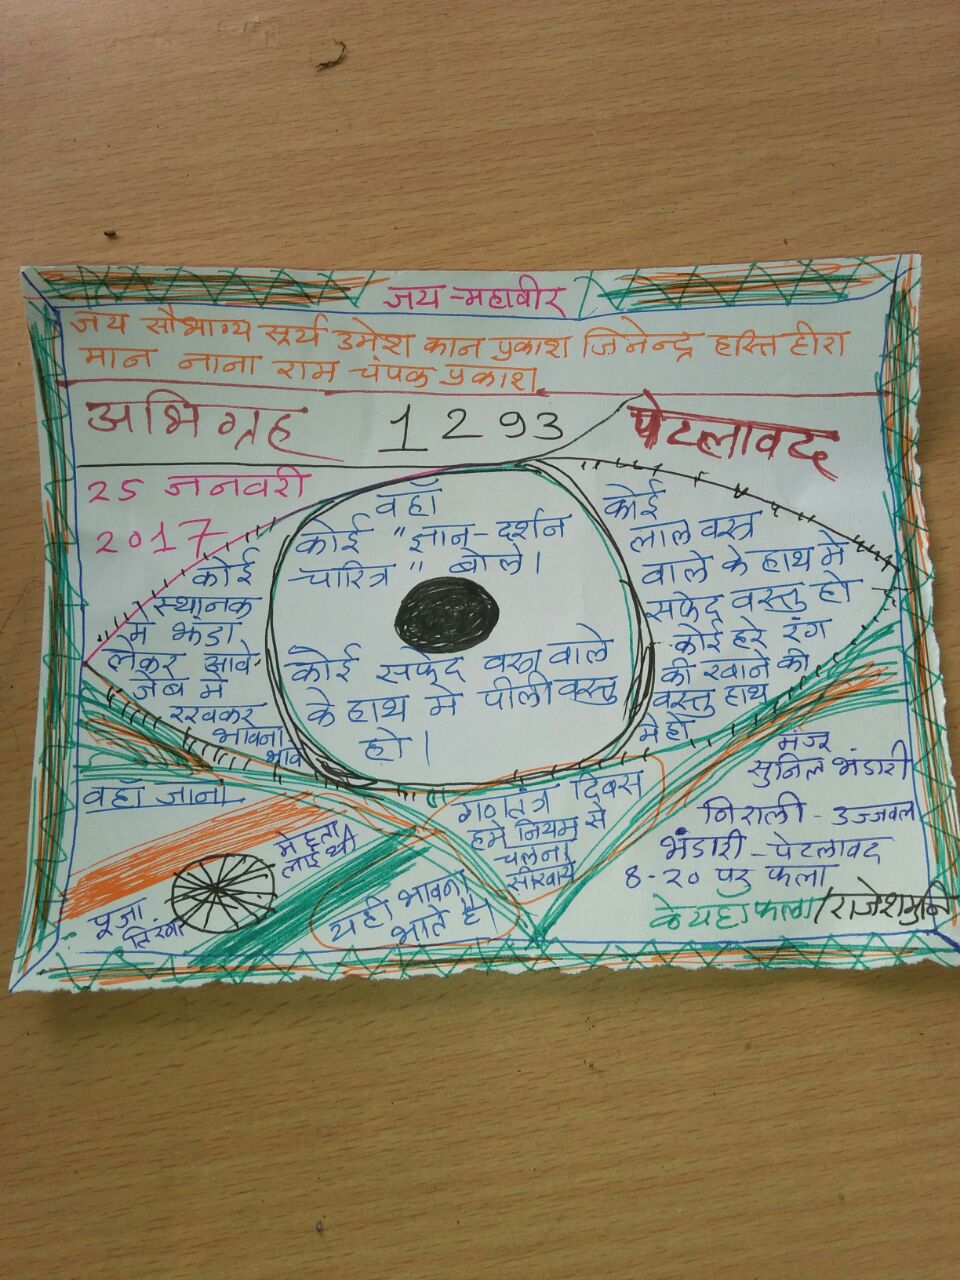 जय -महावीर
जय सौभाग्य सूर्य उमेश कान प्रकाश जिनेन्द्र हस्ति हीरा
मान नाना राम चंपक प्रकाश
अभिग्रह 1293 पेटलावद
25 जनवरी
2017
कोई
स्थानक
मे झंडा
लेकर आवे
जेब मे
रखकर
भावना
भावे
वहाँ जाना
वहाँ
कोई "ज्ञान-दर्शन
चारित्र" बोले।
कोई सफेद वस्त्र वाले
के हाथ मे पीली वस्तु
हो।
कोई
लाल वस्त्र
वाले के हाथ मे
सफेद वस्तु हो
कोई हरे रंग
की खाने की
वस्तु हाथ
मे हो
पूजा
तिरंगा
मेहता
लाई थी
गणतंत्र दिवस
हमे नियम से
चलना
सीखाये
यही भावना
भाते है।
मंजू
सुनिल भंडारी
निराली - उज्जवल
भंडारी -पेटलावद
8-20 पर फला
के यहाँ फला/राजेशमुनि